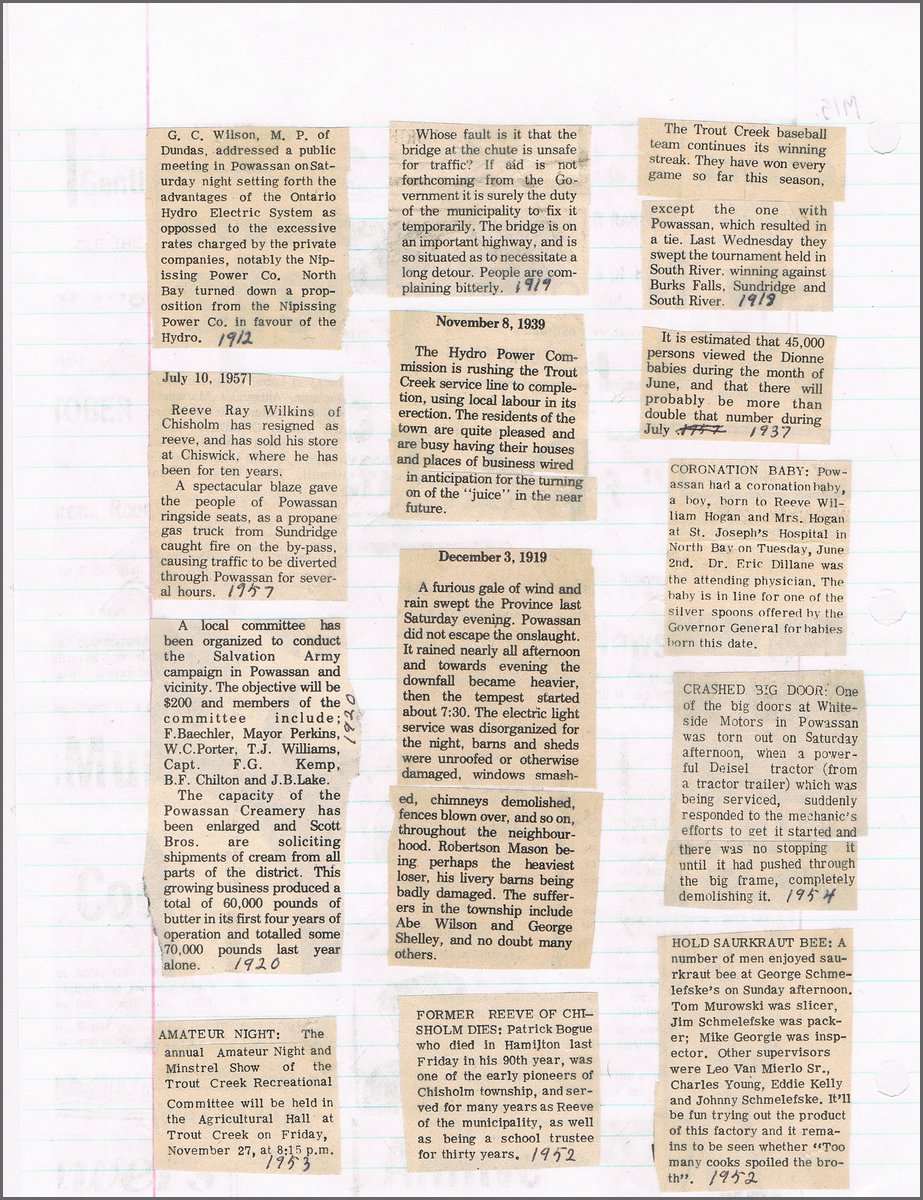 G. C. Wilson, M. P. of
Dundas, addressed a public
meeting in Powassan onSat-
urday night setting forth the
advantages of the Ontario
Hydro Electric System as
oppossed to the excessive
rates charged by the private
companies, notably the Nip-
issing Power Co. North
Bay turned down a prop-
osition from the Nipissing
Power Co. in favour of the
Hydro. 1912
July 10, 1957
Reeve Ray Wilkins of
Chisholm has resigned as
reeve, and has sold his store
at Chiswick, where he has
been for ten years.
A spectacular blaze gave
the people of Powassan
ringside seats, as a propane
gas truck from Sundridge
caught fire on the by-pass,
causing traffic to be diverted
through Powassan for sever-
al hours. 1957
A local committee has
been organized to conduct
the Salvation Army
campaign in Powassan and
vicinity. The objective will be
$200 and members of the
committee include;
F.Baechler, Mayor Perkins,
W.C.Porter, T.J. Williams,
Capt. F.G. Kemp,
B.F. Chilton and J.B.Lake.
1920
The capacity of the
Powassan Creamery has
been enlarged and Scott
Bros. are soliciting
shipments of cream from all
parts of the district. This
growing business produced a
total of 60,000 pounds of
butter in its first four years of
operation and totalled some
70,000 pounds last year
alone. 1920
AMATEUR NIGHT: The
annual Amateur Night and
Minstrel Show of the
Trout Creek Recreational
Committee will be held in
the Agricultural Hall at
Trout Creek on Friday,
November 27, at 8:15 p.m.
1953
Whose fault is it that the
bridge at the chute is unsafe
for traffic? If aid is not
forthcoming from the Go-
vernment it is surely the duty
of the municipality to fix it
temporarily. The bridge is on
an important highway, and is
so situated as to necessitate a
long detour. People are com-
plaining bitterly. 1919
November 8, 1939
The Hydro Power Com-
mission is rushing the Trout
Creek service line to comple-
tion, using local labour in its
erection. The residents of the
town are quite pleased and
are busy having their houses
and places of business wired
in anticipation for the turning
on of the "juice" in the near
future.
December 3, 1919
A furious gale of wind and
rain swept the Province last
Saturday evening. Powassan
did not escape the onslaught.
It rained nearly all afternoon
and towards evening the
downfall became heavier,
then the tempest started
about 7:30. The electric light
service was disorganized for
the night, barns and sheds
were unroofed or otherwise
damaged, windows smash-
ed, chimneys demolished,
fences blown over, and so on,
throughout the neighbour-
hood. Robertson Mason be-
ing perhaps the heaviest
loser, his livery barns being
badly damaged. The suffer-
ers in the township include
Abe Wilson and George
Shelley, and no doubt many
others.
FORMER REEVE OF CHI-
SHOLM DIES: Patrick Bogue
who died in Hamilton last
Friday in his 90th year, was
one of the early pioneers of
Chisholm township, and ser-
ved for many years as Reeve
of the municipality, as well
as being a school trustee
for thirty years. 1952
The Trout Creek baseball
team continues its winning
streak. They have won every
game so far this season,
except the one with
Powassan, which resulted in
a tie. Last Wednesday they
swept the tournament held in
South River. winning against
Burks Falls, Sundridge and
South River. 1918
It is estimated that 45,000
persons viewed the Dionne
babies during the month of
June, and that there will
probably be more than
double that number during
July 1957 1937
CORONATION BABY: Pow-
assan had a coronation baby,
a boy, born to Reeve Wil-
liam Hogan and Mrs. Hogan
at St. Joseph's Hospital in
North Bay on Tuesday, June
2nd. Dr. Eric Dillane was
the attending physician. The
baby is in line for one of the
silver spoons offered by the
Governor General for babies
born this date.
CRASHED BIG DOOR: One
of the big doors at White-
side Motors in Powassan
was torn out on Saturday
afternoon, when a power-
ful Deisel tractor (from
a tractor trailer) which was
being serviced, suddenly
responded to the mechanic's
efforts to get it started and
there was no stopping it
until it had pushed through
the big frame, completely
demolishing it. 1954
HOLD SAURKRAUT BEE: A
number of men enjoyed sau-
rkraut bee at George Schme-
lefske's on Sunday afternoon.
Tom Murowski was slicer,
Jim Schmelefske was pack-
er; Mike Georgie was insp-
ector. Other supervisors
were Leo Van Mierlo Sr.,
Charles Young, Eddie Kelly
and Johnny Schmelefske. It'll
be fun trying out the product
of this factory and it rema-
ins to be seen whether "Too
many cooks spoiled the bro-
th". 1952